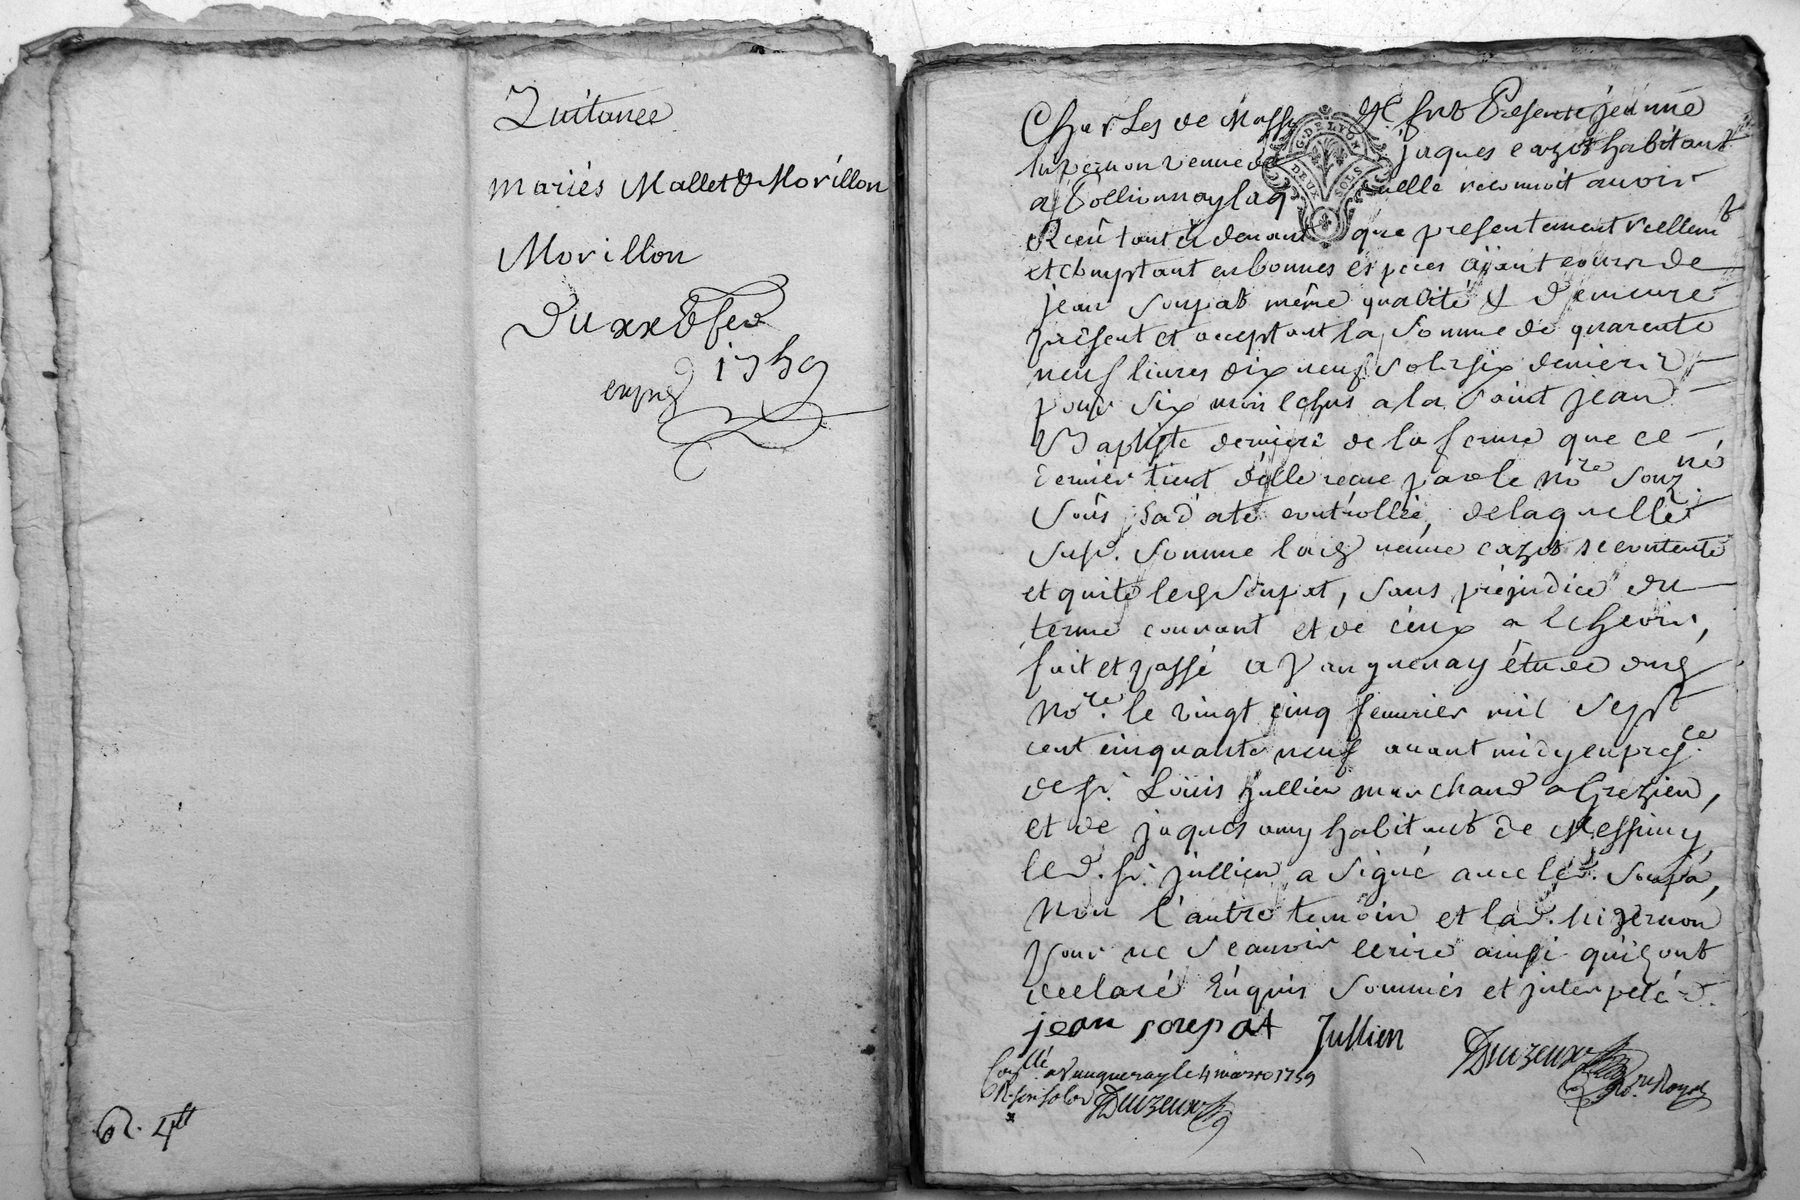 Quitance
mariés Mallet & Morillon
Morillon
Du xxe fev
1759
exped
R. 4lt
Charles de Masso fut Presente jeanne
veuve de jaques cazot habitante
a Pollionnay laquelle reconnoit avoir
Receu tant cy devant que presentement reellemt
et Comptant en bonnes espèces ayant cours de
jean soupat même qualité & demeure
présent et acceptant la somme de quarente
neuf livres dix neuf sols six deniers
pour six mois echus a la saint jean
Baptiste derniere de la ferme que ce
dernier tient d'elle recue par le Nore souzné
sous sa date controllée, de laquelle
susd. somme lad veuve cazot se contente
et quite led Soupat, sans préjudice du
terme courant et de ceux a echeoir,
fait et passé a Vaugneray étude dud
Nore. le vingt cinq fevurier mil sept
cent cinquante neuf avant midy en presce
de sr. Louis Jullien marchand a Grezieu,
et de jaques amy habitant de Messimy
led. sr. jullien a signé avec led. soupa,
Non l'autre temoin et lad.
pour ne scavoir ecrire ainsi qu'ils ont
declaré Enquis sommés et interpelé d.
jean sorepat Jullien
Duzeux
No.re Royal
Conllé a Vaugneray le 4 mars 1759
R. six sols Duzeux
G. DE LYON
DEUX SOLS